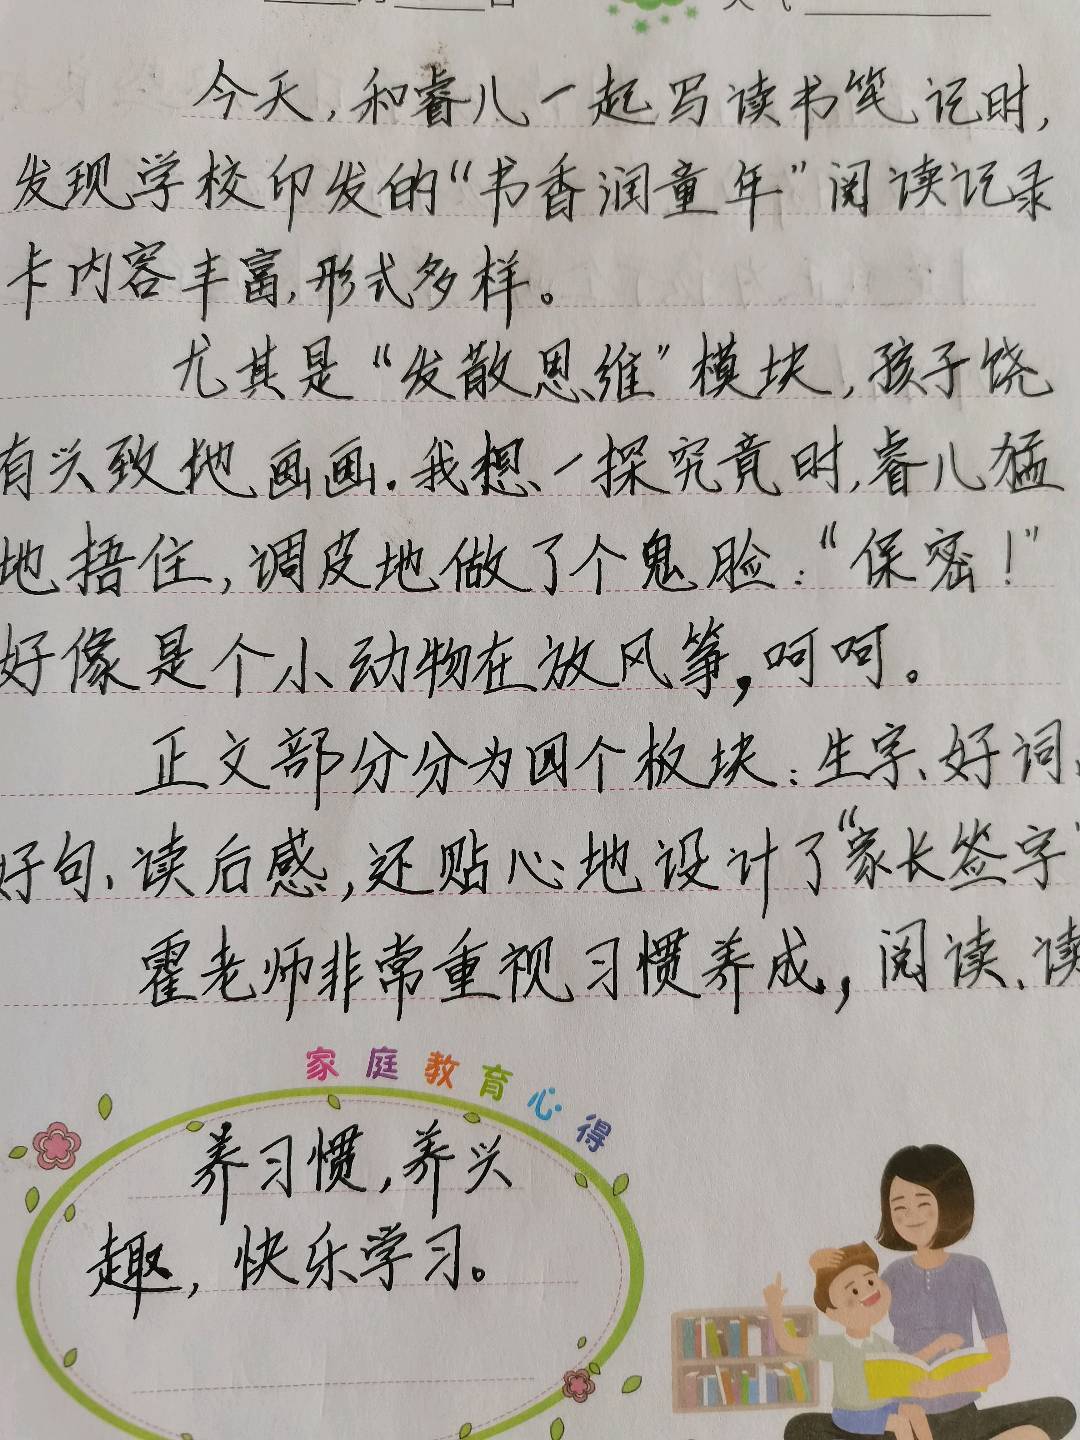 今天,和睿儿一起写读书笔记时,
发现学校印发的“书香润童年”阅读记录
卡内容丰富,形式多样。
尤其是“发散思维”模块,孩子饶
有兴致地画画.我想一探究竟时,睿儿猛
地捂住,调皮地做了个鬼脸:“保密!”
好像是个小动物在放风筝,呵呵。
正文部分分为四个板块:生字、好词、
好句、读后感,还贴心地设计了“家长签字”
霍老师非常重视习惯养成,阅读、读
家庭教育心得
养习惯,养兴
趣,快乐学习。